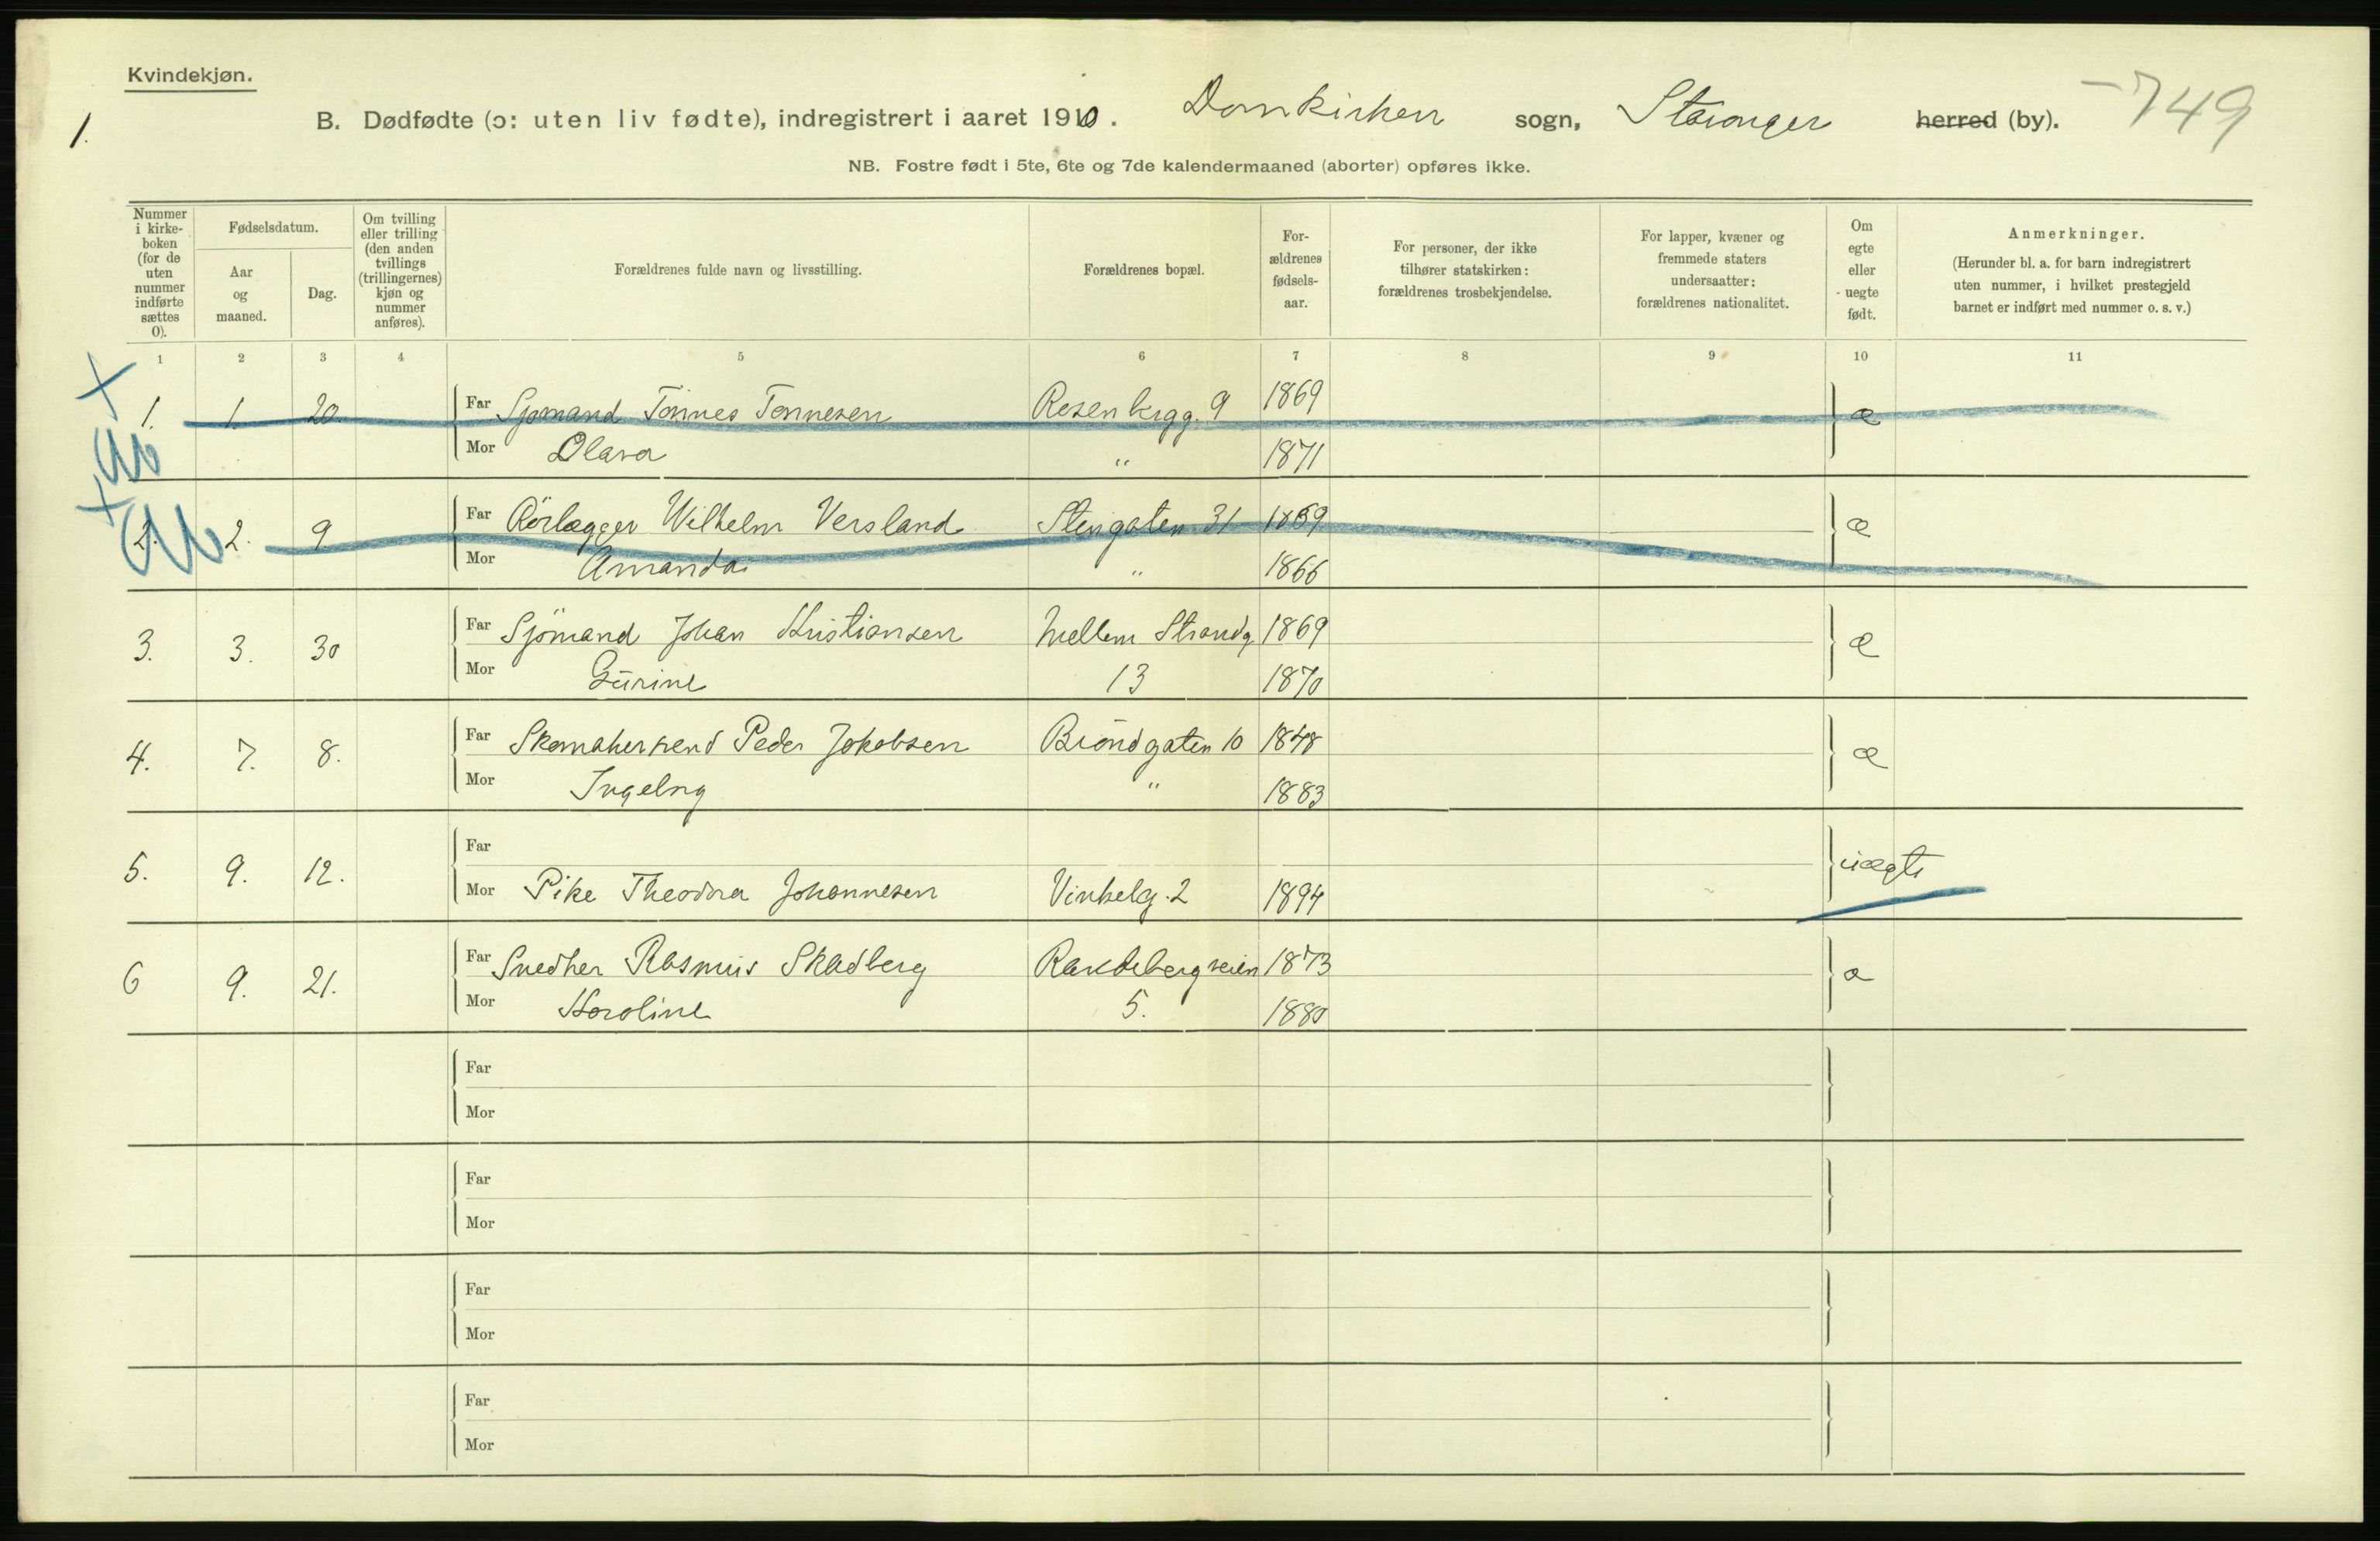 Kvindekjøn.
1.
B. Dødfødte (ɔ: uten liv fødte), indregistrert i aaret 1910. Domkirken sogn, Stavanger herred (by). -749
NB. Fostre født i 5te, 6te og 7de kalendermaaned (aborter) opføres ikke.
Nummer i kirke-boken (for de uten nummer indførte sættes 0).
Fødselsdatum.
Aar og maaned.
Dag.
Om tvilling eller trilling (den anden tvillings (trillingernes) kjøn og nummer anføres).
Forældrenes fulde navn og livsstilling.
Forældrenes bopæl.
For-ældrenes fødsels-aar.
For personer, der ikke tilhører statskirken: forældrenes trosbekjendelse.
For lapper, kvæner og fremmede staters undersaatter: forældrenes nationalitet.
Om egte eller uegte født.
Anmerkninger.
(Herunder bl. a. for barn indregistrert uten nummer, i hvilket prestegjeld barnet er indført med nummer o. s. v.)
1 2 3 4 5 6 7 8 9 10 11
1. 1. 20. Far Sjömand Tönnes Tönnesen Rosenbergg. 9 1869 æ
Mor Olava " 1871
2. 2. 9. Far Rörlægger Wilhelm Versland Stengaten 31 1869 æ
Mor Amanda " 1866
3. 3. 30 Far Sjömand Johan Kristiansen Mellem Strandg 1869 æ
Mor Gurine 13 1870
4. 7. 8. Far Skomakersvend Peder Jakobsen Bröndgaten 10 1848 æ
Mor " 1883
5. 9. 12. Far uægte
Mor Pike Theodora Johannesen Vinkelg. 2 1894
6 9. 21. Far Snedker Rasmus Skadberg 1873 æ
Mor Karoline 5. 1880
Far
Mor
Far
Mor
Far
Mor
Far
Mor